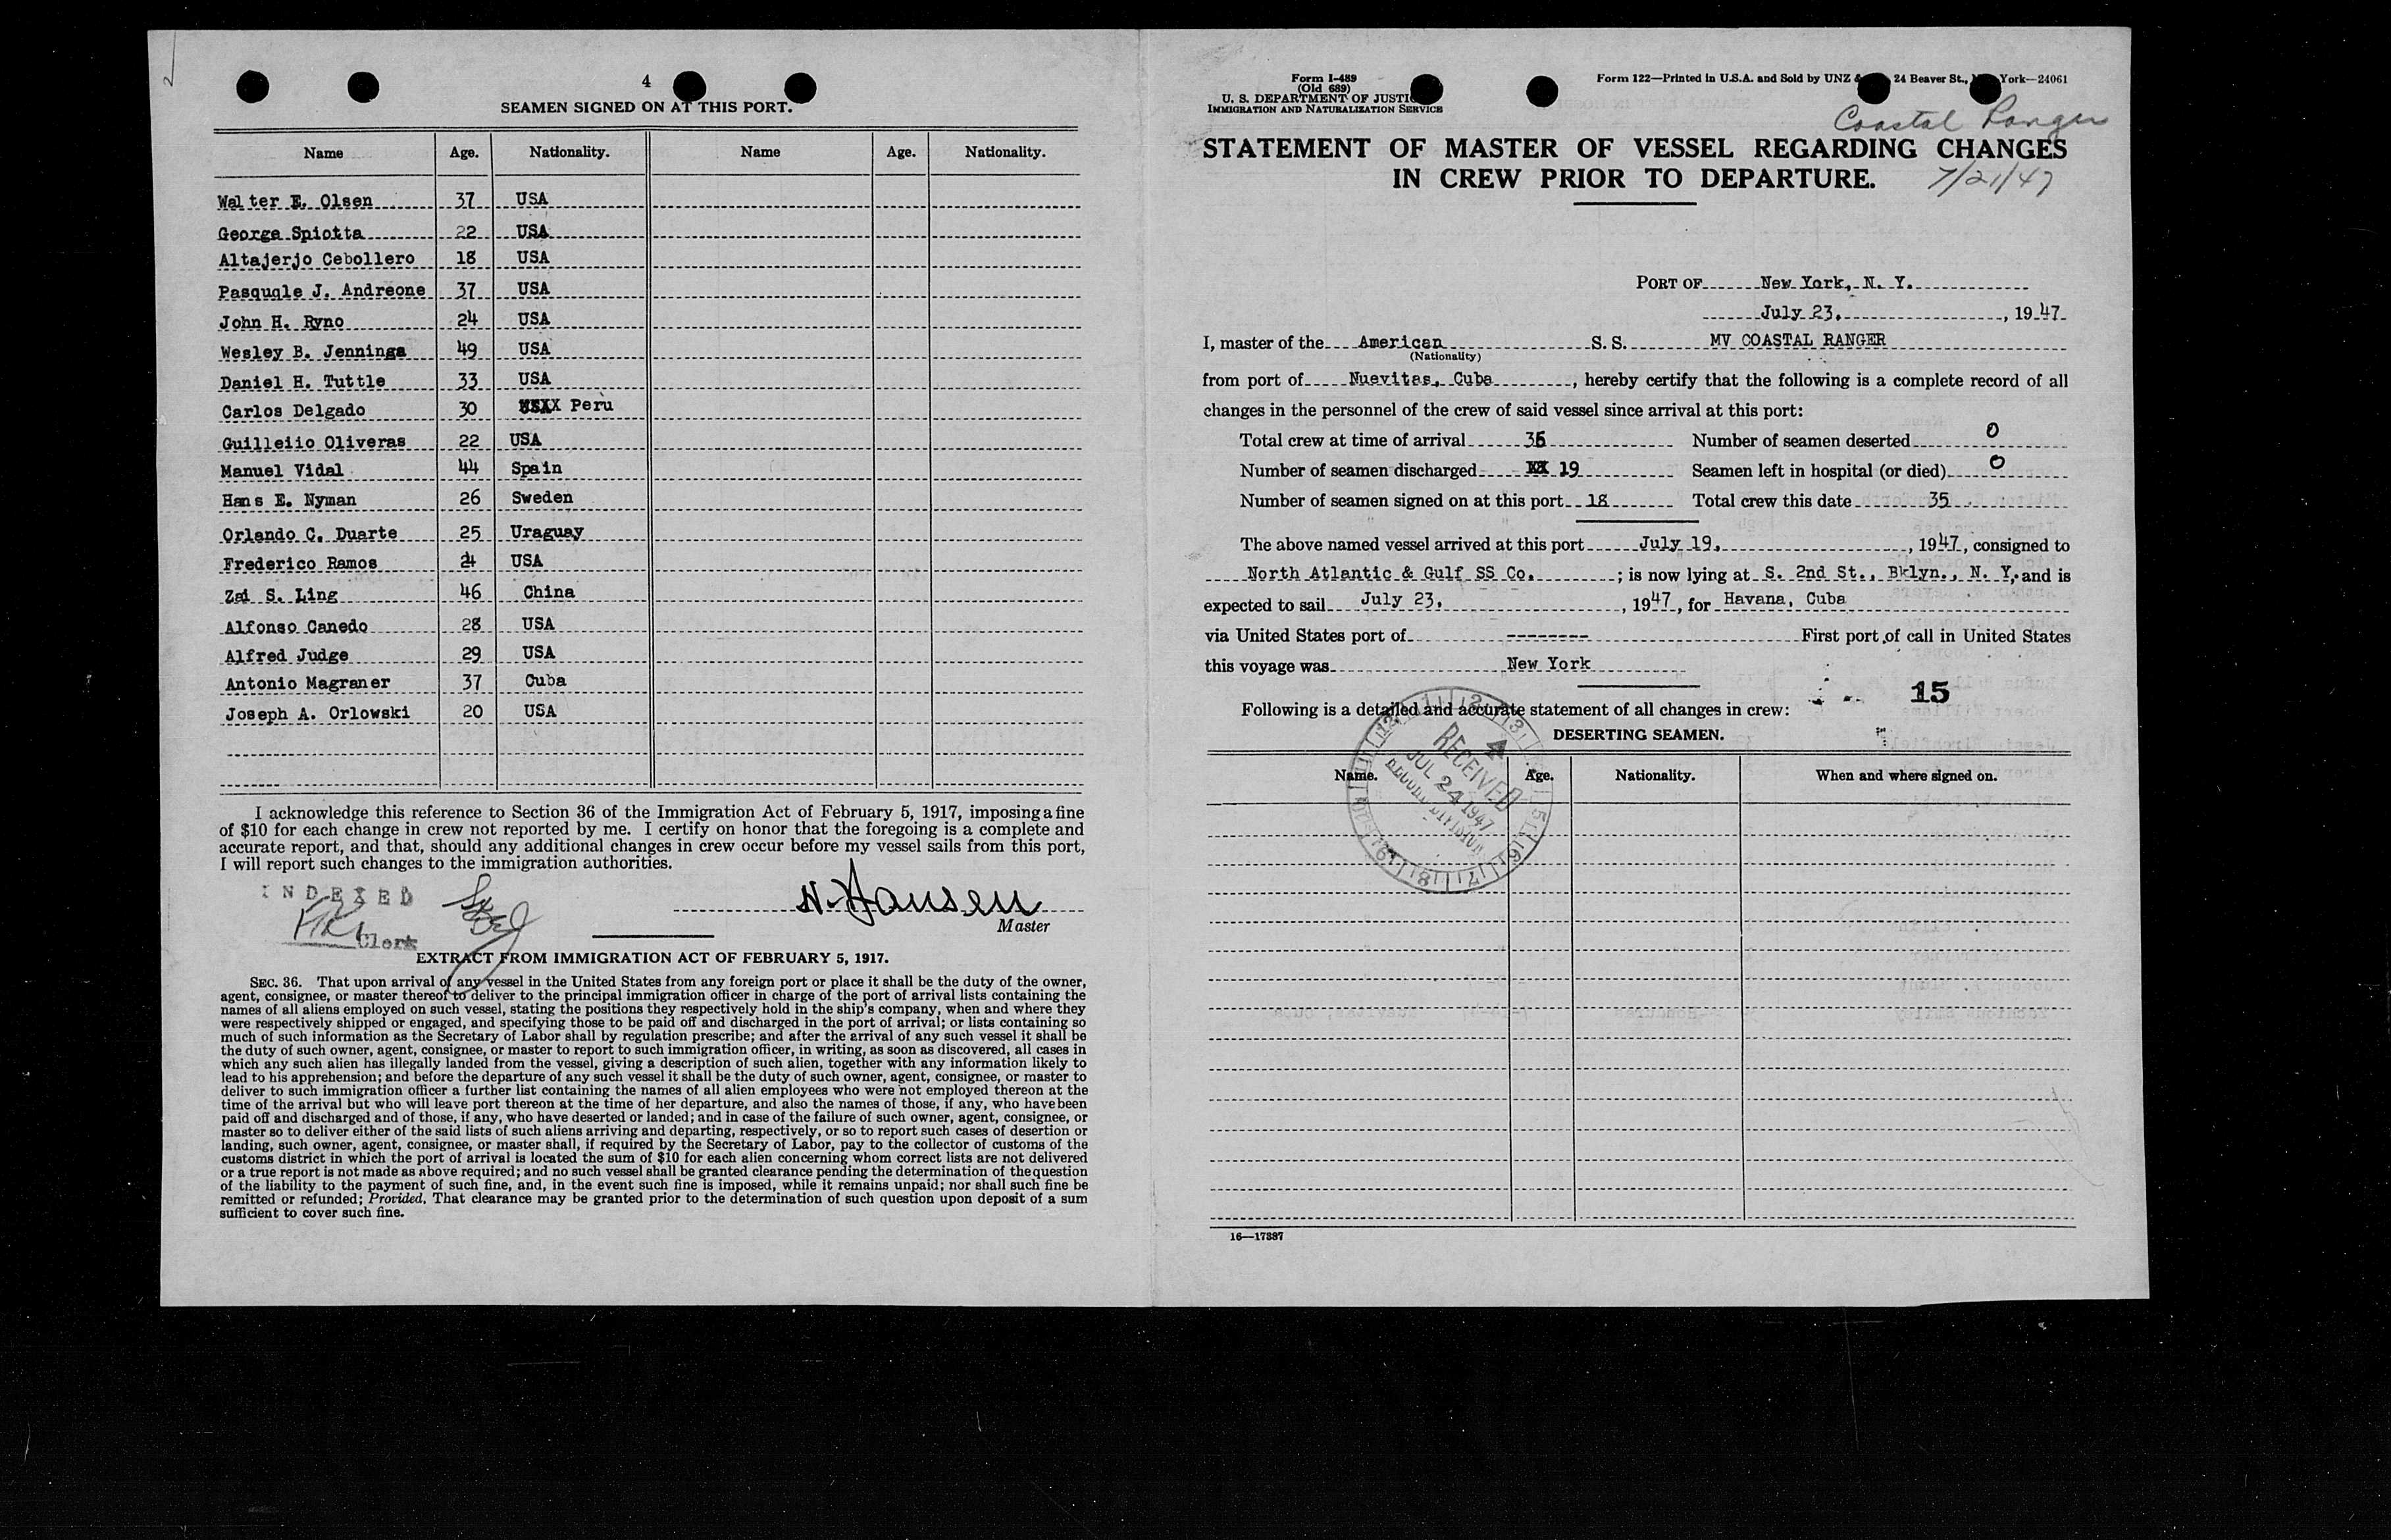 4
SEAMEN SIGNED ON AT THIS PORT.
Name Age. Nationality. Name Age. Nationality.
Walter E. Olsen 37 USA
George Spiotta 22 USA
Altajerjo Cebollero 18 USA
Pasquqle J. Andreone 37 USA
John H. Ryno 24 USA
Wesley B. Jennings 49 USA
Daniel H. Tuttle 33 USA
Carlos Delgado 30 Peru
Guilleiio Oliveras 22 USA
Manuel Vidal 44 Spain
Hans E. Nyman 26 Sweden
Orlando C. Duarte 25 Uraguay
Frederico Ramos 24 USA
Zai S. Ling 46 China
Alfonso Canedo 28 USA
Alfred Judge 29 USA
Antonio Magraner 37 Cuba
Joseph A. Orlowski 20 USA
I acknowledge this reference to Section 36 of the Immigration Act of February 5, 1917, imposing a fine
of $10 for each change in crew not reported by me. I certify on honor that the foregoing is a complete and
accurate report, and that, should any additional changes in crew occur before my vessel sails from this port,
I will report such changes to the immigration authorities.
INDEXED
Clerk
N. Hansen
Master
EXTRACT FROM IMMIGRATION ACT OF FEBRUARY 5, 1917.
SEC. 36. That upon arrival of any vessel in the United States from any foreign port or place it shall be the duty of the owner,
agent, consignee, or master thereof to deliver to the principal immigration officer in charge of the port of arrival lists containing the
names of all aliens employed on such vessel, stating the positions they respectively hold in the ship's company, when and where they
were respectively shipped or engaged, and specifying those to be paid off and discharged in the port of arrival; or lists containing so
much of such information as the Secretary of Labor shall by regulation prescribe; and after the arrival of any such vessel it shall be
the duty of such owner, agent, consignee, or master to report to such immigration officer, in writing, as soon as discovered, all cases in
which any such alien has illegally landed from the vessel, giving a description of such alien, together with any information likely to
lead to his apprehension; and before the departure of any such vessel it shall be the duty of such owner, agent, consignee, or master to
deliver to such immigration officer a further list containing the names of all alien employees who were not employed thereon at the
time of the arrival but who will leave port thereon at the time of her departure, and also the names of those, if any, who have been
paid off and discharged and of those, if any, who have deserted or landed; and in case of the failure of such owner, agent, consignee, or
master so to deliver either of the said lists of such aliens arriving and departing, respectively, or so to report such cases of desertion or
landing, such owner, agent, consignee, or master shall, if required by the Secretary of Labor, pay to the collector of customs of the
customs district in which the port of arrival is located the sum of $10 for each alien concerning whom correct lists are not delivered
or a true report is not made as above required; and no such vessel shall be granted clearance pending the determination of the question
of the liability to the payment of such fine, and, in the event such fine is imposed, while it remains unpaid; nor shall such fine be
remitted or refunded; Provided, That clearance may be granted prior to the determination of such question upon deposit of a sum
sufficient to cover such fine.
Form I-489
(Old 689)
U. S. DEPARTMENT OF JUSTICE
IMMIGRATION AND NATURALIZATION SERVICE
Form 122—Printed in U.S.A. and Sold by UNZ & 24 Beaver St., York—24061
Coastal Ranger
STATEMENT OF MASTER OF VESSEL REGARDING CHANGES
IN CREW PRIOR TO DEPARTURE.
7/21/47
PORT OF New York, N. Y.
July 23, , 1947
I, master of the American S. S. MV COASTAL RANGER
(Nationality)
from port of Nuevitas, Cuba , hereby certify that the following is a complete record of all
changes in the personnel of the crew of said vessel since arrival at this port:
Total crew at time of arrival 36 Number of seamen deserted 0
Number of seamen discharged 19 Seamen left in hospital (or died) 0
Number of seamen signed on at this port 18 Total crew this date 35
The above named vessel arrived at this port July 19, , 1947, consigned to
North Atlantic & Gulf SS Co. ; is now lying at S. 2nd St., Bklyn., N. Y, and is
expected to sail July 23, , 1947, for Havana, Cuba
via United States port of -------- First port of call in United States
this voyage was New York
15
Following is a detailed and accurate statement of all changes in crew:
DESERTING SEAMEN.
RECEIVED
JUL 24 1947
Name. Age. Nationality. When and where signed on.
16—17387